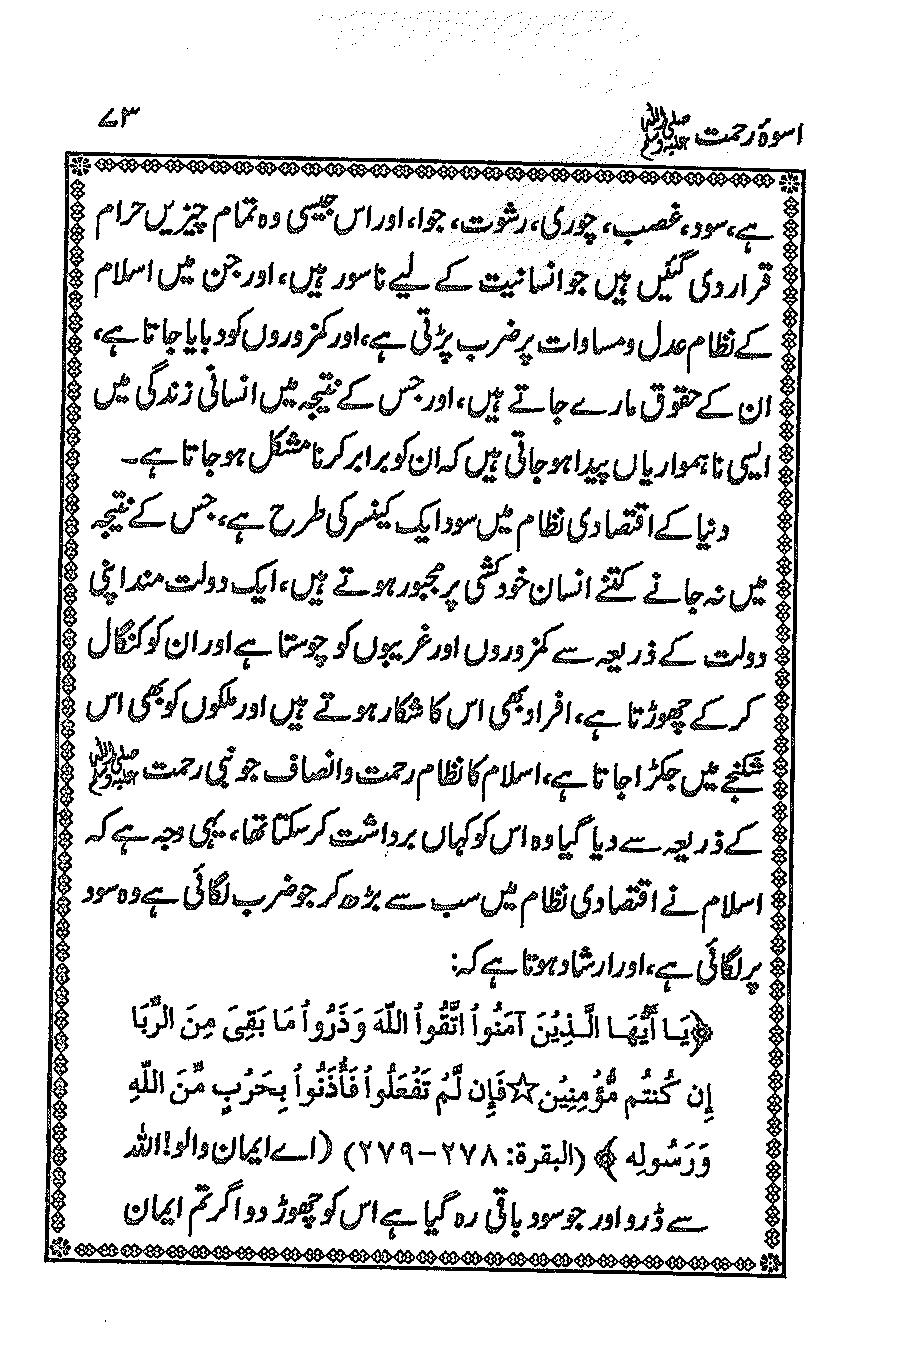 اسوۂ رحمت ﷺ ۷۳
ہے، سود، غصب، چوری، رشوت، جوا، اور اس جیسی وہ تمام چیزیں حرام
قرار دی گئیں ہیں جو انسانیت کے لیے ناسور ہیں، اور جن میں اسلام
کے نظام عدل و مساوات پر ضرب پڑتی ہے، اور کمزوروں کو دبایا جاتا ہے،
ان کے حقوق مارے جاتے ہیں، اور جس کے نتیجہ میں انسانی زندگی میں
ایسی ناہمواریاں پیدا ہوجاتی ہیں کہ ان کو برابر کرنا مشکل ہوجاتا ہے۔
دنیا کے اقتصادی نظام میں سود ایک کینسر کی طرح ہے، جس کے نتیجہ
میں نہ جانے کتنے انسان خودکشی پر مجبور ہوتے ہیں، ایک دولت مند اپنی
دولت کے ذریعہ سے کمزوروں اور غریبوں کو چوستا ہے اور ان کو کنگال
کرکے چھوڑتا ہے، افراد بھی اس کا شکار ہوتے ہیں اور ملکوں کو بھی اس
شکنجے میں جکڑا جاتا ہے، اسلام کا نظام رحمت و انصاف جو نبی رحمت ﷺ
کے ذریعہ سے دیا گیا وہ اس کو کہاں برداشت کرسکتا تھا، یہی وجہ ہے کہ
اسلام نے اقتصادی نظام میں سب سے بڑھ کر جو ضرب لگائی ہے وہ سود
پر لگائی ہے، اور ارشاد ہوتا ہے کہ:
﴿يَا أَيُّهَا الَّذِيْنَ آمَنُواْ اتَّقُواْ اللّهَ وَذَرُواْ مَا بَقِيَ مِنَ الرِّبَا
إِن كُنتُم مُّؤْمِنِيْن☆فَإِن لَّمْ تَفْعَلُواْ فَأْذَنُواْ بِحَرْبٍ مِّنَ اللّهِ
وَرَسُولِهِ﴾ (البقرة: ۲۷۸-۲۷۹) (اے ایمان والو! اللہ
سے ڈرو اور جو سود باقی رہ گیا ہے اس کو چھوڑ دو اگر تم ایمان